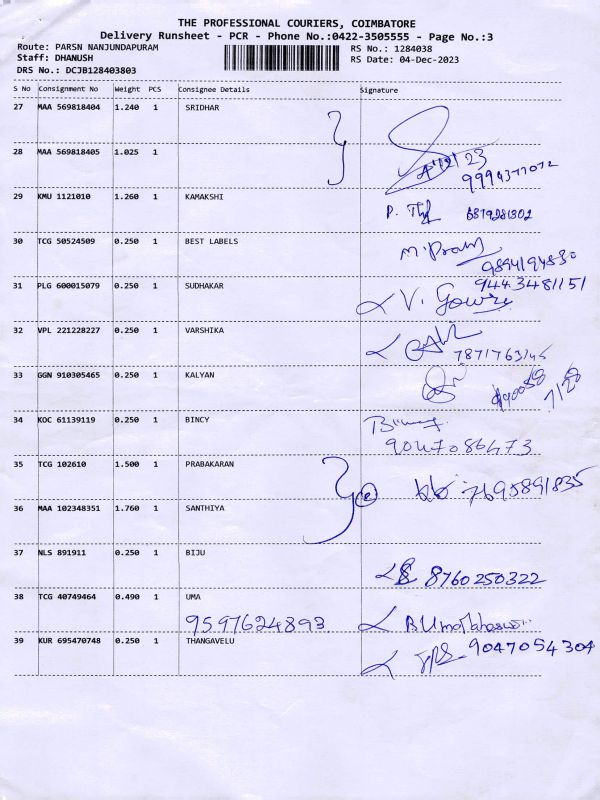 THE PROFESSIONAL COURIERS, COIMBATORE
Delivery Runsheet - PCR - Phone No.:0422-3505555 - Page No.:3
Route: PARSN NANJUNDAPURAM RS No.: 1284038
Staff: DHANUSH RS Date: 04-Dec-2023
DRS No.: DCJB128403803
S No Consignment No Weight PCS Consignee Details Signature
27 MAA 569818404 1.240 1 SRIDHAR
28 MAA 569818405 1.025 1
29 KMU 1121010 1.260 1 KAMAKSHI
30 TCG 50524509 0.250 1 BEST LABELS
9894194830
31 PLG 600015079 0.250 1 SUDHAKAR 9443481151
V. Gowri
32 VPL 221228227 0.250 1 VARSHIKA
33 GGN 910305465 0.250 1 KALYAN
34 KOC 61139119 0.250 1 BINCY Bincy
9047086473
35 TCG 102610 1.500 1 PRABAKARAN
7695891835
36 MAA 102348351 1.760 1 SANTHIYA
37 NLS 891911 0.250 1 BIJU
8760250322
38 TCG 40749464 0.490 1 UMA
9597624893 B Umamaheswari
39 KUR 695470748 0.250 1 THANGAVELU 9047054304